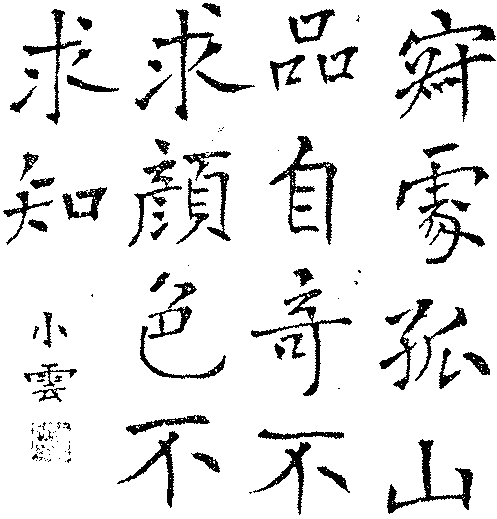 寂處孤山
品自奇不
求顏色不
求知
小雲